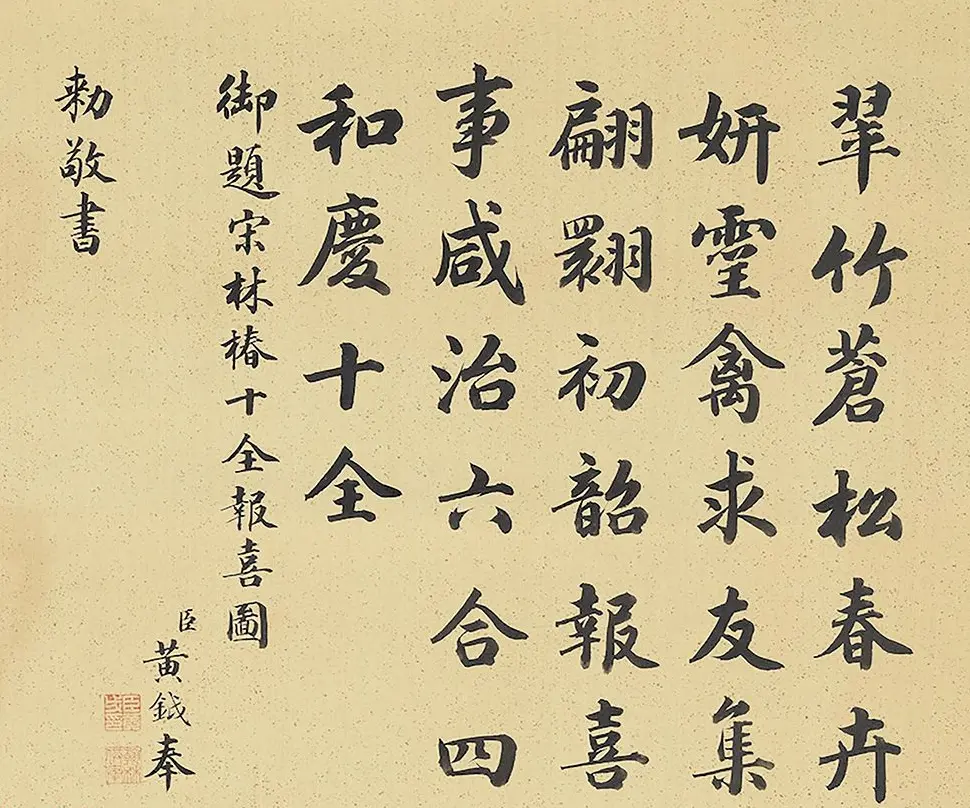 翠竹蒼松春卉
妍靈禽求友集
翩翾初韶報喜
事咸治六合四
和慶十全
御題宋林椿十全報喜圖
臣黃鉞奉
勅敬書